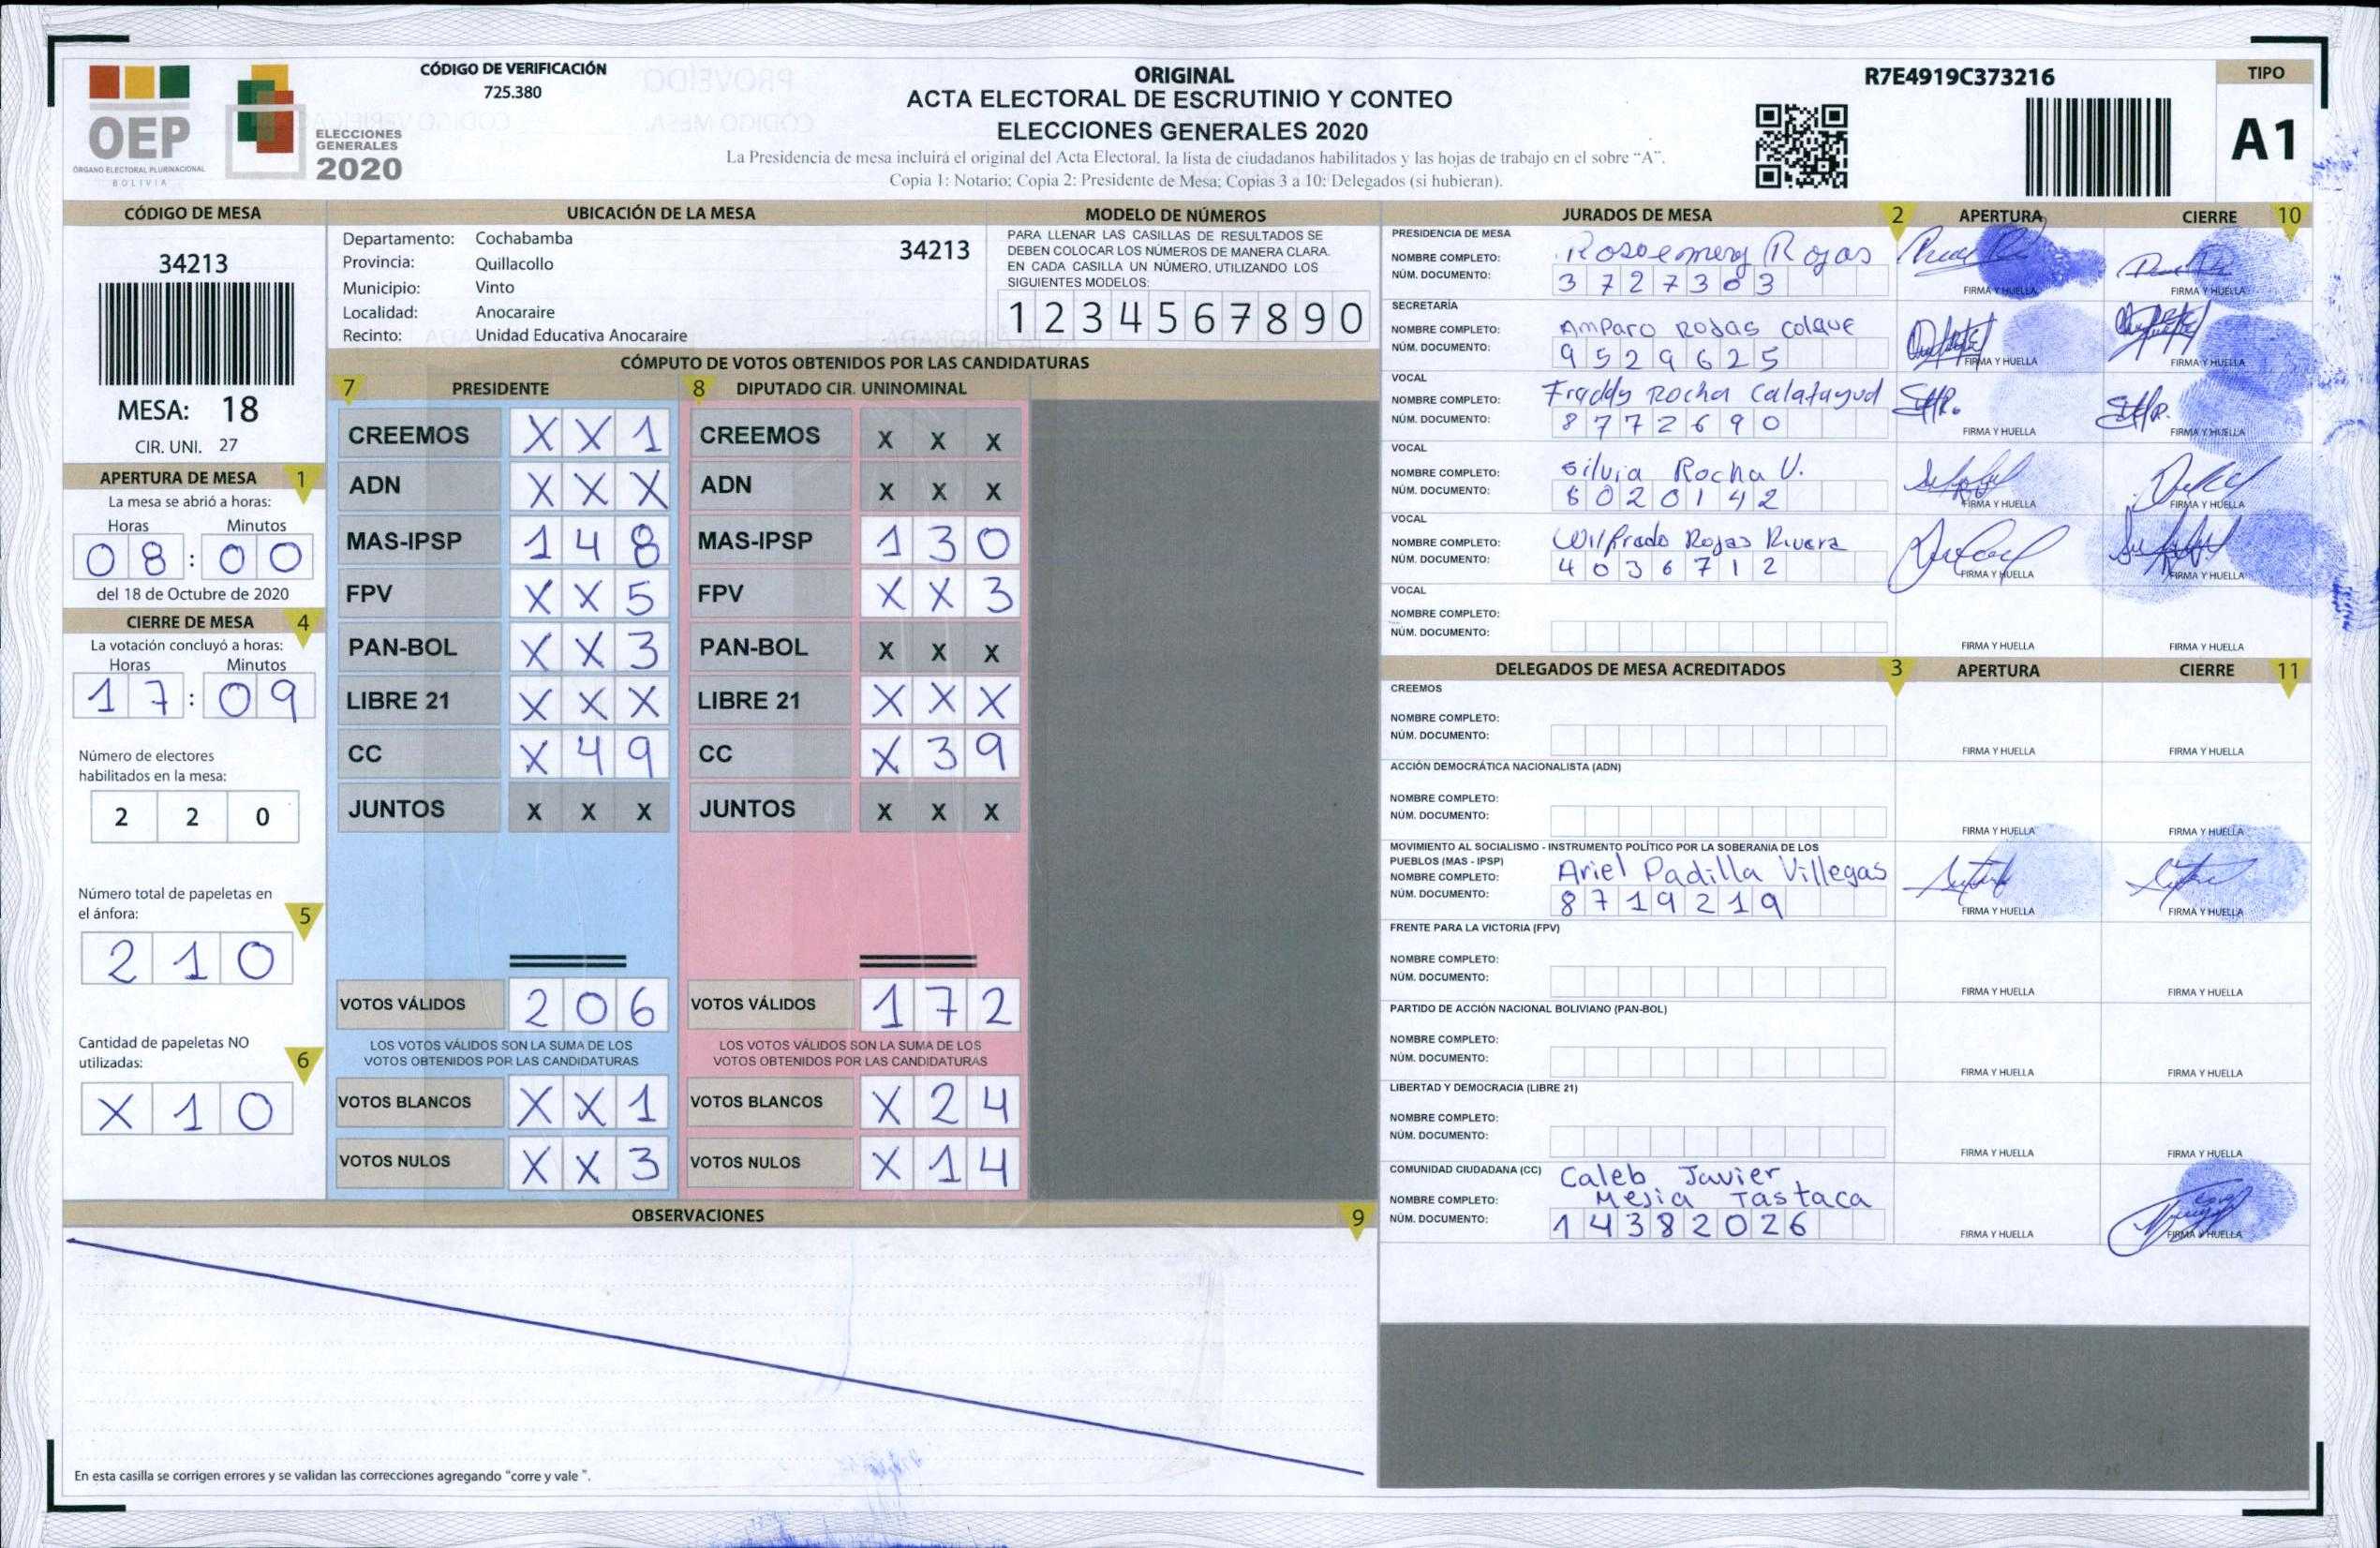 OEP
ÓRGANO ELECTORAL PLURINACIONAL
BOLIVIA
ELECCIONES
GENERALES
2020
CÓDIGO DE VERIFICACIÓN
725.380
ORIGINAL
ACTA ELECTORAL DE ESCRUTINIO Y CONTEO
ELECCIONES GENERALES 2020
La Presidencia de mesa incluirá el original del Acta Electoral, la lista de ciudadanos habilitados y las hojas de trabajo en el sobre "A".
Copia 1: Notario; Copia 2: Presidente de Mesa; Copias 3 a 10: Delegados (si hubieran).
R7E4919C373216
TIPO
A1
CÓDIGO DE MESA
34213
MESA: 18
CIR. UNI. 27
APERTURA DE MESA 1
La mesa se abrió a horas:
Horas Minutos
08:00
del 18 de Octubre de 2020
CIERRE DE MESA 4
La votación concluyó a horas:
Horas Minutos
17:09
Número de electores
habilitados en la mesa:
2 2 0
Número total de papeletas en
el ánfora: 5
2 1 0
Cantidad de papeletas NO
utilizadas: 6
X 1 0
UBICACIÓN DE LA MESA
Departamento: Cochabamba 34213
Provincia: Quillacollo
Municipio: Vinto
Localidad: Anocaraire
Recinto: Unidad Educativa Anocaraire
MODELO DE NÚMEROS
PARA LLENAR LAS CASILLAS DE RESULTADOS SE
DEBEN COLOCAR LOS NÚMEROS DE MANERA CLARA.
EN CADA CASILLA UN NÚMERO, UTILIZANDO LOS
SIGUIENTES MODELOS:
1 2 3 4 5 6 7 8 9 0
CÓMPUTO DE VOTOS OBTENIDOS POR LAS CANDIDATURAS
7 PRESIDENTE 8 DIPUTADO CIR. UNINOMINAL
CREEMOS X X 1 CREEMOS X X X
ADN X X X ADN X X X
MAS-IPSP 1 4 8 MAS-IPSP 1 3 0
FPV X X 5 FPV X X 3
PAN-BOL X X 3 PAN-BOL X X X
LIBRE 21 X X X LIBRE 21 X X X
CC X 4 9 CC X 3 9
JUNTOS X X X JUNTOS X X X
VOTOS VÁLIDOS 2 0 6 VOTOS VÁLIDOS 1 7 2
LOS VOTOS VÁLIDOS SON LA SUMA DE LOS LOS VOTOS VÁLIDOS SON LA SUMA DE LOS
VOTOS OBTENIDOS POR LAS CANDIDATURAS VOTOS OBTENIDOS POR LAS CANDIDATURAS
VOTOS BLANCOS X X 1 VOTOS BLANCOS X 2 4
VOTOS NULOS X X 3 VOTOS NULOS X 1 4
OBSERVACIONES 9
En esta casilla se corrigen errores y se validan las correcciones agregando "corre y vale ".
JURADOS DE MESA 2 APERTURA CIERRE 10
PRESIDENCIA DE MESA
NOMBRE COMPLETO: Rossemery Rojas
NÚM. DOCUMENTO: 3727303
FIRMA Y HUELLA FIRMA Y HUELLA
SECRETARÍA
NOMBRE COMPLETO: Amparo Rojas Colque
NÚM. DOCUMENTO: 9529625
FIRMA Y HUELLA FIRMA Y HUELLA
VOCAL
NOMBRE COMPLETO: Freddy Rocha Calatayud
NÚM. DOCUMENTO: 8772690
FIRMA Y HUELLA FIRMA Y HUELLA
VOCAL
NOMBRE COMPLETO: Silvia Rocha V.
NÚM. DOCUMENTO: 8020142
FIRMA Y HUELLA FIRMA Y HUELLA
VOCAL
NOMBRE COMPLETO: Wilfredo Rojas Rivera
NÚM. DOCUMENTO: 4036712
FIRMA Y HUELLA FIRMA Y HUELLA
VOCAL
NOMBRE COMPLETO:
NÚM. DOCUMENTO:
FIRMA Y HUELLA FIRMA Y HUELLA
DELEGADOS DE MESA ACREDITADOS 3 APERTURA CIERRE 11
CREEMOS
NOMBRE COMPLETO:
NÚM. DOCUMENTO:
FIRMA Y HUELLA FIRMA Y HUELLA
ACCIÓN DEMOCRÁTICA NACIONALISTA (ADN)
NOMBRE COMPLETO:
NÚM. DOCUMENTO:
FIRMA Y HUELLA FIRMA Y HUELLA
MOVIMIENTO AL SOCIALISMO - INSTRUMENTO POLÍTICO POR LA SOBERANIA DE LOS
PUEBLOS (MAS - IPSP)
NOMBRE COMPLETO: Ariel Padilla Villegas
NÚM. DOCUMENTO: 8719219
FIRMA Y HUELLA FIRMA Y HUELLA
FRENTE PARA LA VICTORIA (FPV)
NOMBRE COMPLETO:
NÚM. DOCUMENTO:
FIRMA Y HUELLA FIRMA Y HUELLA
PARTIDO DE ACCIÓN NACIONAL BOLIVIANO (PAN-BOL)
NOMBRE COMPLETO:
NÚM. DOCUMENTO:
FIRMA Y HUELLA FIRMA Y HUELLA
LIBERTAD Y DEMOCRACIA (LIBRE 21)
NOMBRE COMPLETO:
NÚM. DOCUMENTO:
FIRMA Y HUELLA FIRMA Y HUELLA
COMUNIDAD CIUDADANA (CC) Caleb Javier
NOMBRE COMPLETO: Mejia Tastaca
NÚM. DOCUMENTO: 14382026
FIRMA Y HUELLA FIRMA Y HUELLA